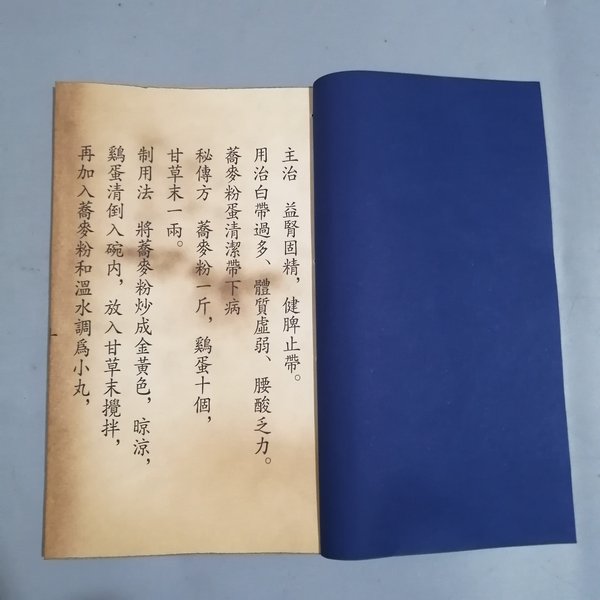 主治　益腎固精，健脾止帶。
用治白帶過多、體質虛弱、腰酸乏力。
蕎麥粉蛋清潔帶下病
秘傳方　蕎麥粉一斤，鷄蛋十個，
甘草末一兩。
制用法　將蕎麥粉炒成金黃色，晾涼，
鷄蛋清倒入碗内，放入甘草末攪拌，
再加入蕎麥粉和溫水調爲小丸，